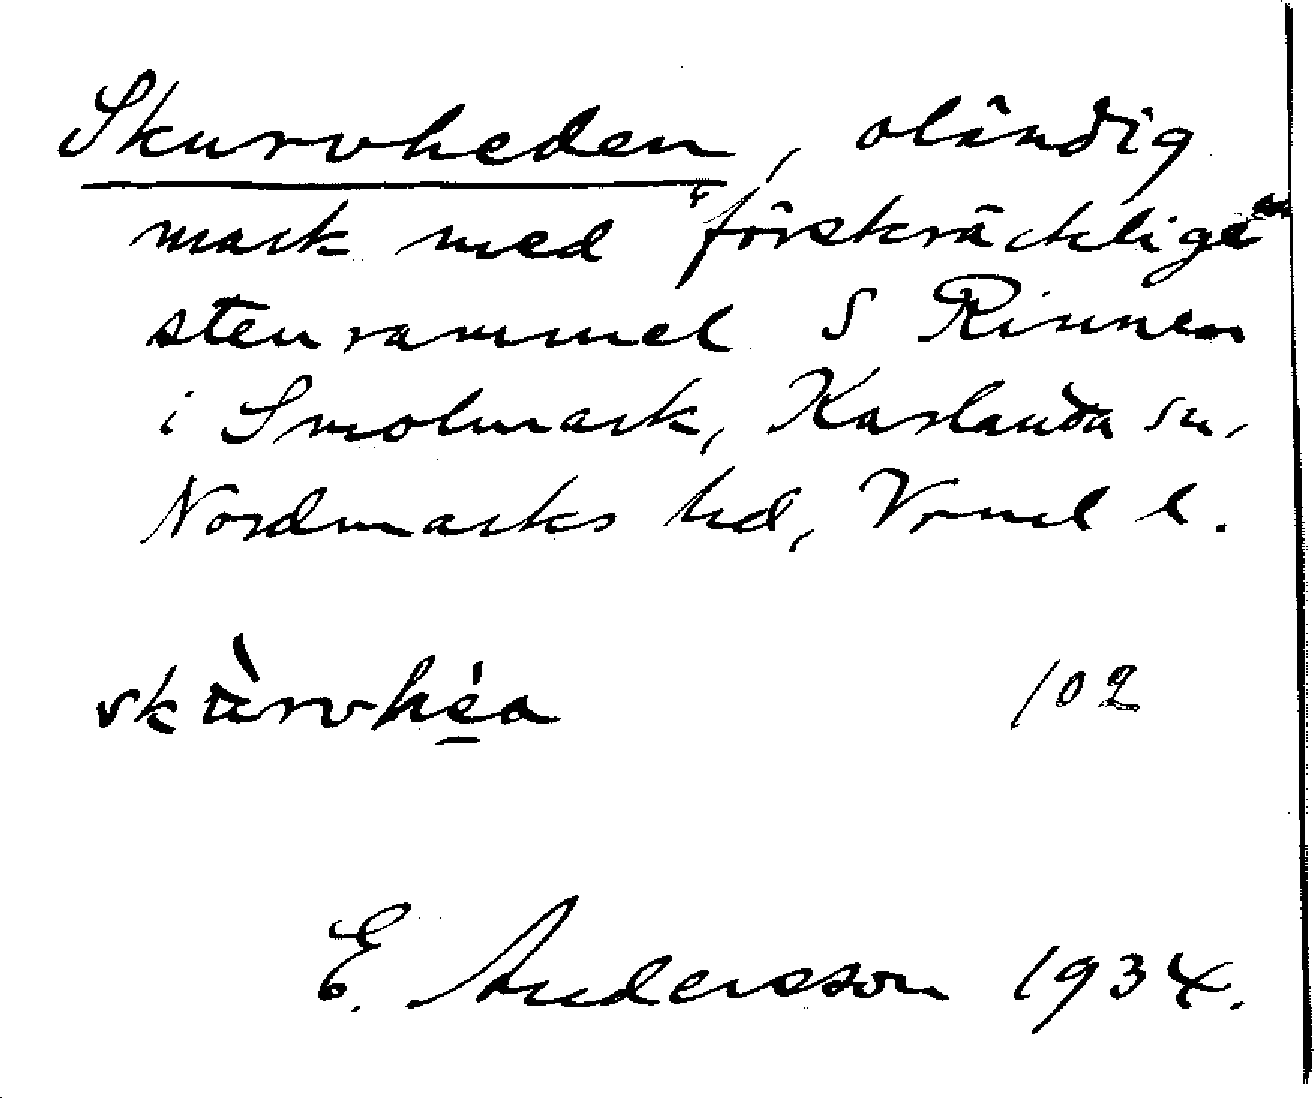 Skurvheden, oländig
mark med "förskräckliga"
stenrammel S Rinnen
i Smolmark, Karlanda sn,
Nordmarks hd, Vrml l.
skùrvhéa 102
E. Andersson 1934.